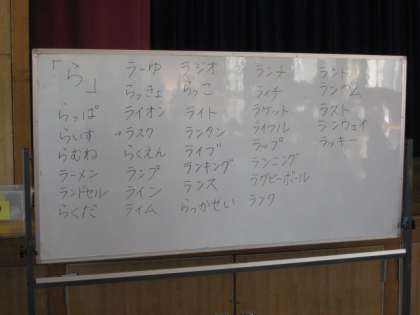 「ら」
らっぱ
らいす
らむね
ラーメン
ランドセル
らくだ
ラーゆ
らっきょ
ライオン
ラスク
らくえん
ランプ
ライン
ライム
ラジオ
らっこ
ライト
ランタン
ライブ
ランキング
ランス
らっかせい
ランチ
ライチ
ラケット
ライフル
ラップ
ランニング
ラグビーボール
ランク
ラスト
ランウェイ
ラッキー